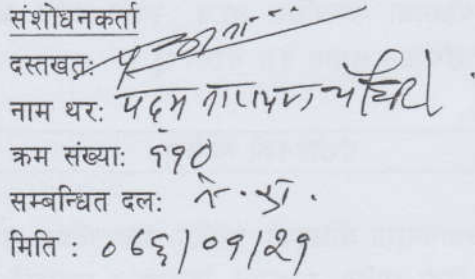 संशोधनकर्ता
दस्तखतः
नाम थर: पद्म नारायण चौधरी
क्रम संख्या: ५९०
सम्बन्धित दल: ने. का.
मिति : ०६६/०९/२९